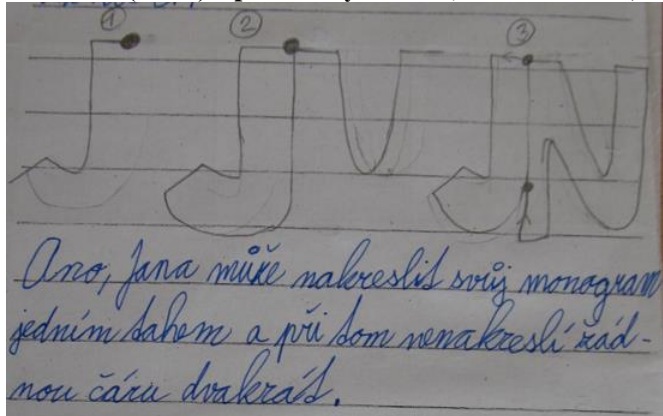 ① ② ③
Ano, Jana může nakreslit svůj monogram
jedním tahem a při tom nenakreslí žád-
nou čáru dvakrát.